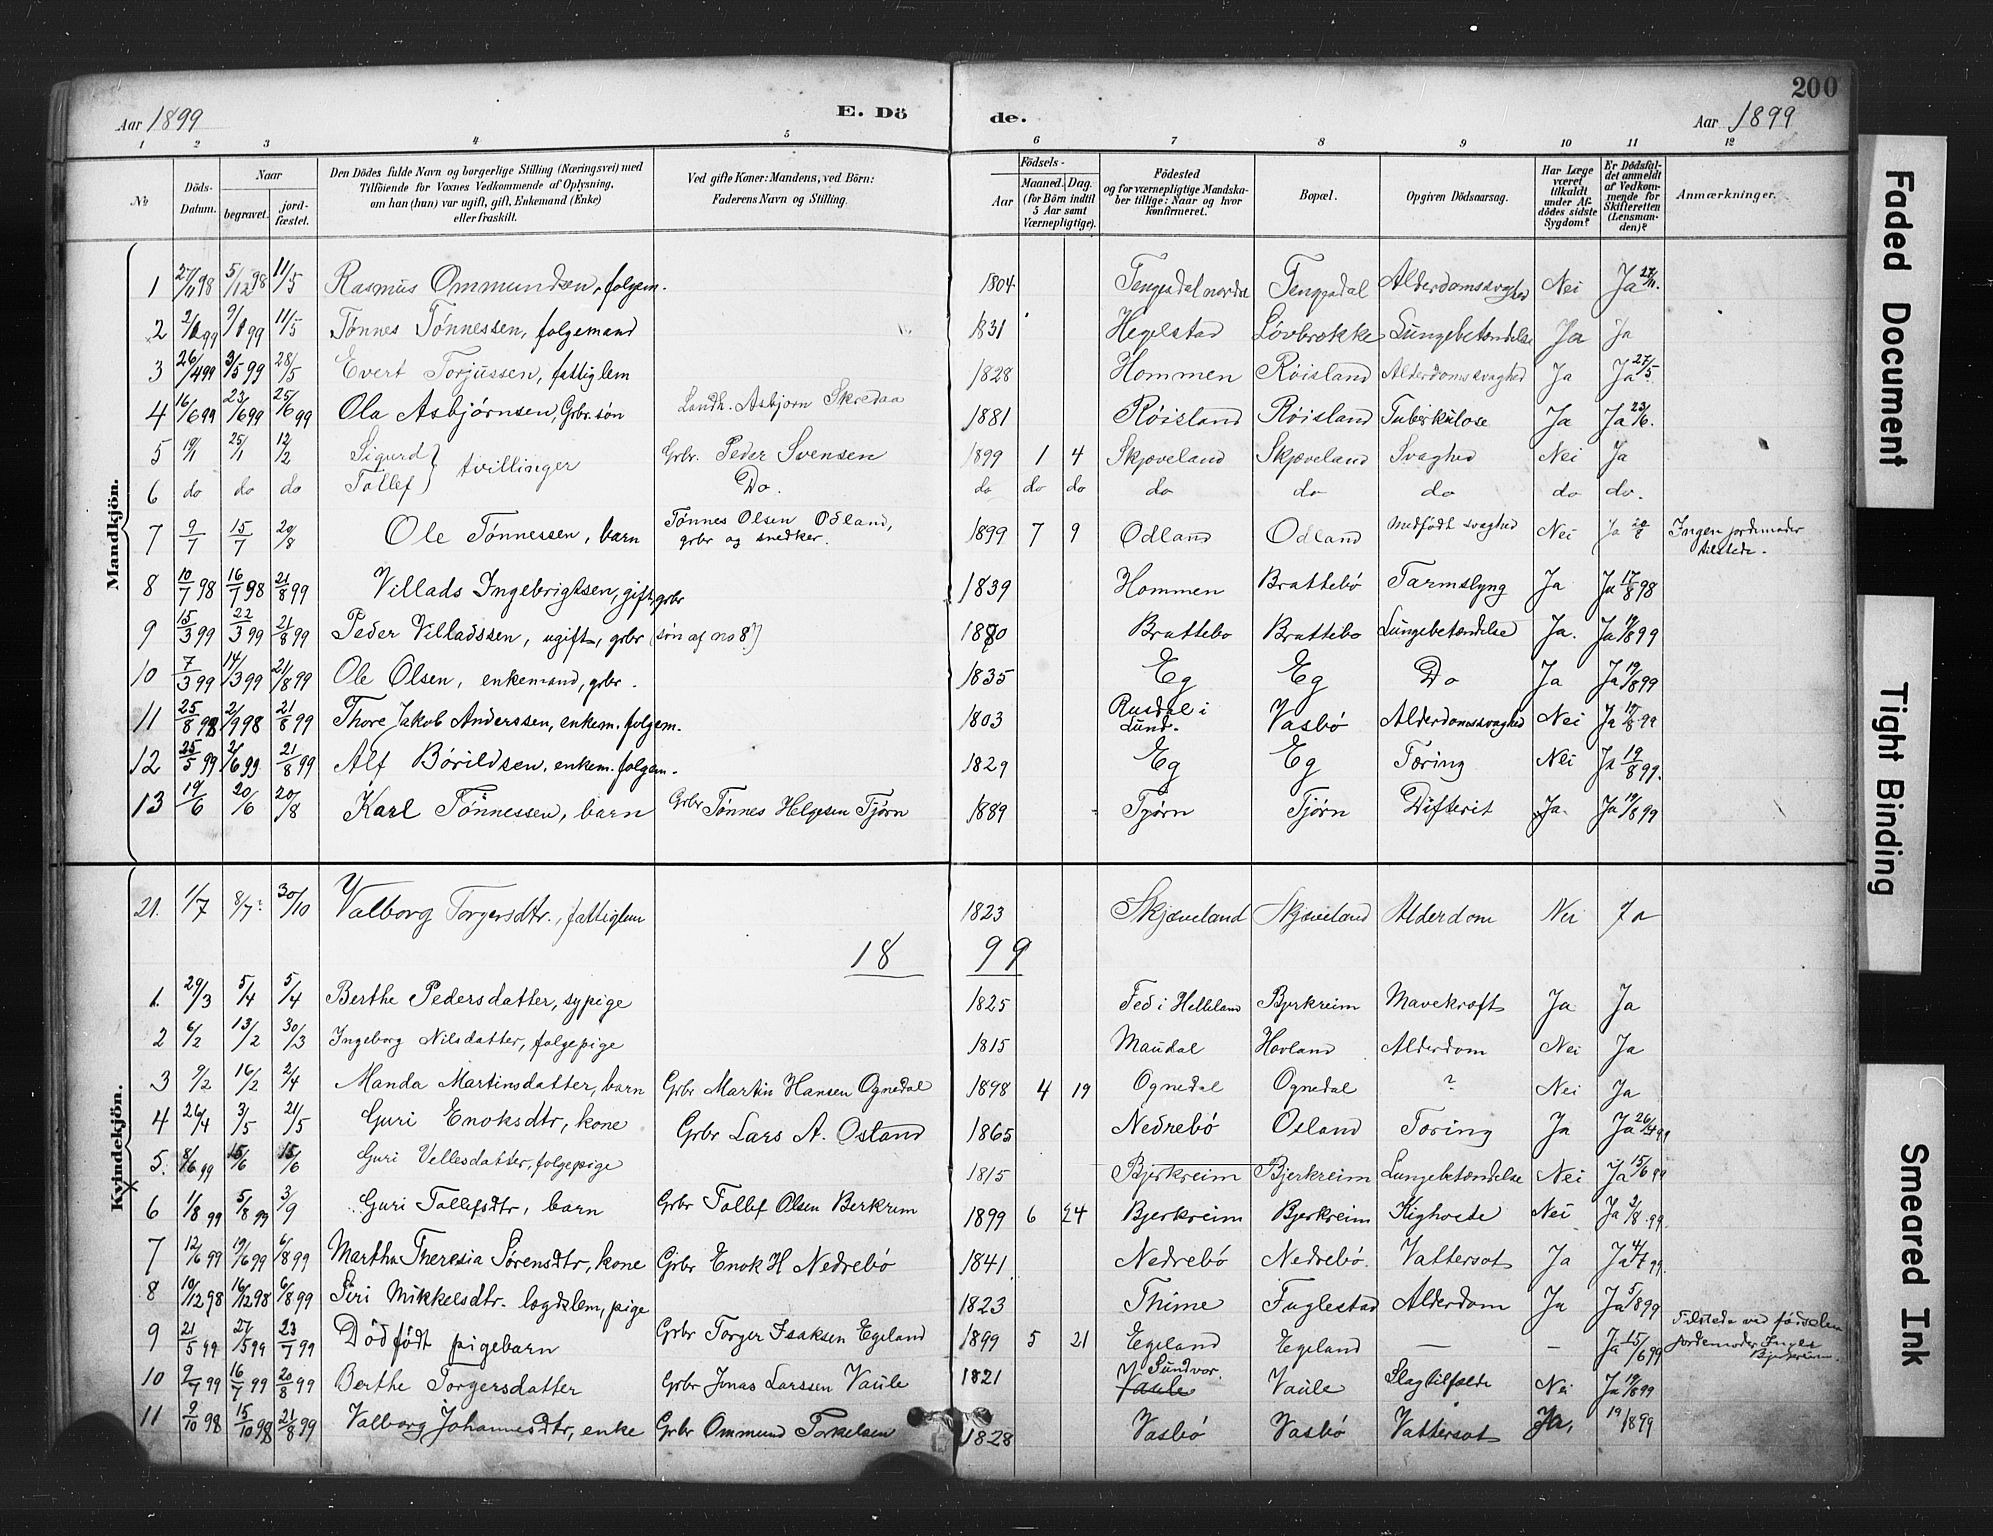 200
Aar 1899 E. Dö de. Aar 1899
1 2 3 4 5 6 7 8 9 10 11 12
No
Döds-Datum.
Naar
begravet.
jord-fæstet.
Den Dödes fulde Navn og borgerlige Stilling (Næringsvei) med
Tilföiende for Voxnes Vedkommende af Oplysning,
om han (hun) var ugift, gift, Enkemand (Enke)
eller fraskilt.
Ved gifte Koner: Mandens, ved Börn:
Faderens Navn og Stilling.
Födsels-
Aar
Maaned. Dag.
(for Börn indtil
5 Aar samt
Værnepligtige).
Födested
og for værnepligtige Mandska-
ber tillige: Naar og hvor
konfirmeret.
Bopæl.
Opgiven Dödsaarsag.
Har Læge
været
tilkaldt
under Af-
dödes sidste
Sygdom?
Er Dödsfal-
det anmeldt
af Vedkom-
mende for
Skifteretten
(Lensman-
den)?
Anmærkninger.
Mandkjön.
1 27/11 98 5/12 98 11/5 Rasmus Ommundsen, folgem. 1804 Tengesdal nordre Tengesdal Alderdomssvaghed Nei Ja 27/11.
2 2/1 99 9/1 99 11/5 Tønnes Tønnessen, folgemand 1831 Hegelstad Løvbrekke Lungebetændelse Ja Ja
3 26/4 99 3/5 99 28/5 Evert Torjussen, fattiglem 1828 Hommen Røisland Alderdomssvaghed Ja Ja 27/5.
4 16/6 99 23/6 99 25/6 99 Ola Asbjørnsen, Grbr. søn Landh. Asbjørn Skredaa 1881 Røisland Røisland Tuberkulose Ja Ja 23/6.
5 19/1 25/1 12/2 Sigurd } tvillinger Grbr. Peder Svensen 1899 1 4 Skjæveland Skjæveland Svaghed Nei Ja
6 do do do Tollef } Do. do do do do do do do do.
7 9/7 15/7 20/8 Ole Tønnessen, barn Tønnes Olsen Odland, 1899 7 9 Odland Odland Medfødt svaghed Nei Ja 20/8 Ingen jordemoder
grbr og snedker. tilstede.
8 10/7 98 16/7 98 21/8 99 Villads Ingebrigtsen, gift, grbr 1839 Hommen Brattebø Tarmslyng Ja Ja 17/8 98
9 15/3 99 22/3 99 21/8 99 Peder Villadssen, ugift, grbr (søn af no 8.) Brattebø Brattebø Lungebetændelse Ja. Ja 19/8 99
10 7/3 99 14/3 99 21/8 99 Ole Olsen, enkemand, grbr. 1835 Eg Eg Do Ja Ja 19/8 99
11 25/8 98 2/9 98 21/8 99 Thore Jakob Anderssen, enkem. folgem. 1803 Rusdal i Lund. Vasbø Alderdomssvaghed Nei Ja 19/8 99
12 25/5 99 2/6 99 21/8 99 Alf Børildsen, enkem. folgem. 1829 Eg Eg Tæring Nei Ja 19/8 99.
13 19/6 20/6 20/8 Karl Tønnessen, barn Grbr Tønnes Helgesen Tjørn 1889 Tjørn Tjørn Difterit Ja. Ja 19/8 99
Kvindekjön.
21. 1/7 8/7 30/10 Valborg Torgersdtr., fattiglem 1823 Skjæveland Skjæveland Alderdom Nei Ja
18 99
1. 29/3 5/4 5/4 Berthe Pedersdatter, sypige 1825 Fed i Helleland Bjerkreim Mavekræft Ja Ja
2 6/2 13/2 30/3 Ingeborg Nilsdatter, folgepige 1815 Maudal Hovland Alderdom Nei Ja
3 9/2 16/2 2/4 Manda Martinsdatter, barn Grbr Martin Hansen Ognedal 1898 4 19 Ognedal Ognedal ? Nei Ja
4 26/4 3/5 21/5 Guri Enoksdtr, kone Grbr Lars A. Osland 1865 Nedrebø Osland Tæring Ja Ja 26/4 99
5. 8/6 99 15/6 15/6 Guri Vellesdatter, folgepige 1815 Bjerkreim Bjerkreim Lungebetændelse Nei Ja 15/6 99
6 1/8 99 5/8 99 3/9 Guri Tollefsdtr, barn Grbr Tollef Olsen Berkrem 1899 6 24 Bjerkreim Bjerkreim Kighoste Nei Ja 2/8 99
7 12/6 99 19/6 99 6/8 99 Martha Theresia Sørensdtr, kone Grbr Enok H Nedrebø 1841 Nedrebø Nedrebø. Vattersot Ja Ja
8 10/12 98 16/12 98 6/8 99 Siri Mikkelsdtr. lægdslem, pige 1823 Thime Fuglestad Alderdom Ja Ja 5/8 99
9 21/5 99 27/5 99 23/7 99 Dødfødt pigebarn Grbr Torger Isaksen Egeland 1899 5 21 Egeland Egeland — — Ja 15/6 99 Tilstede ved fødselen
jordemoder Inger
Bjerkreim.
10 9/7 99 16/7 99 20/8 99 Berthe Torgersdatter Grbr Jonas Larssen Vaule 1821 Sundvor. Vaule Vaule Slagtilfælde Nei Ja 19/8 99
11 9/10 98 15/10 98 21/8 99 Valborg Johannesdtr, enke Grbr Ommund Torkelsen 1828 Vasbø Vasbø Vattersot Ja, 19/8 99
Faded Document
Tight Binding
Smeared Ink